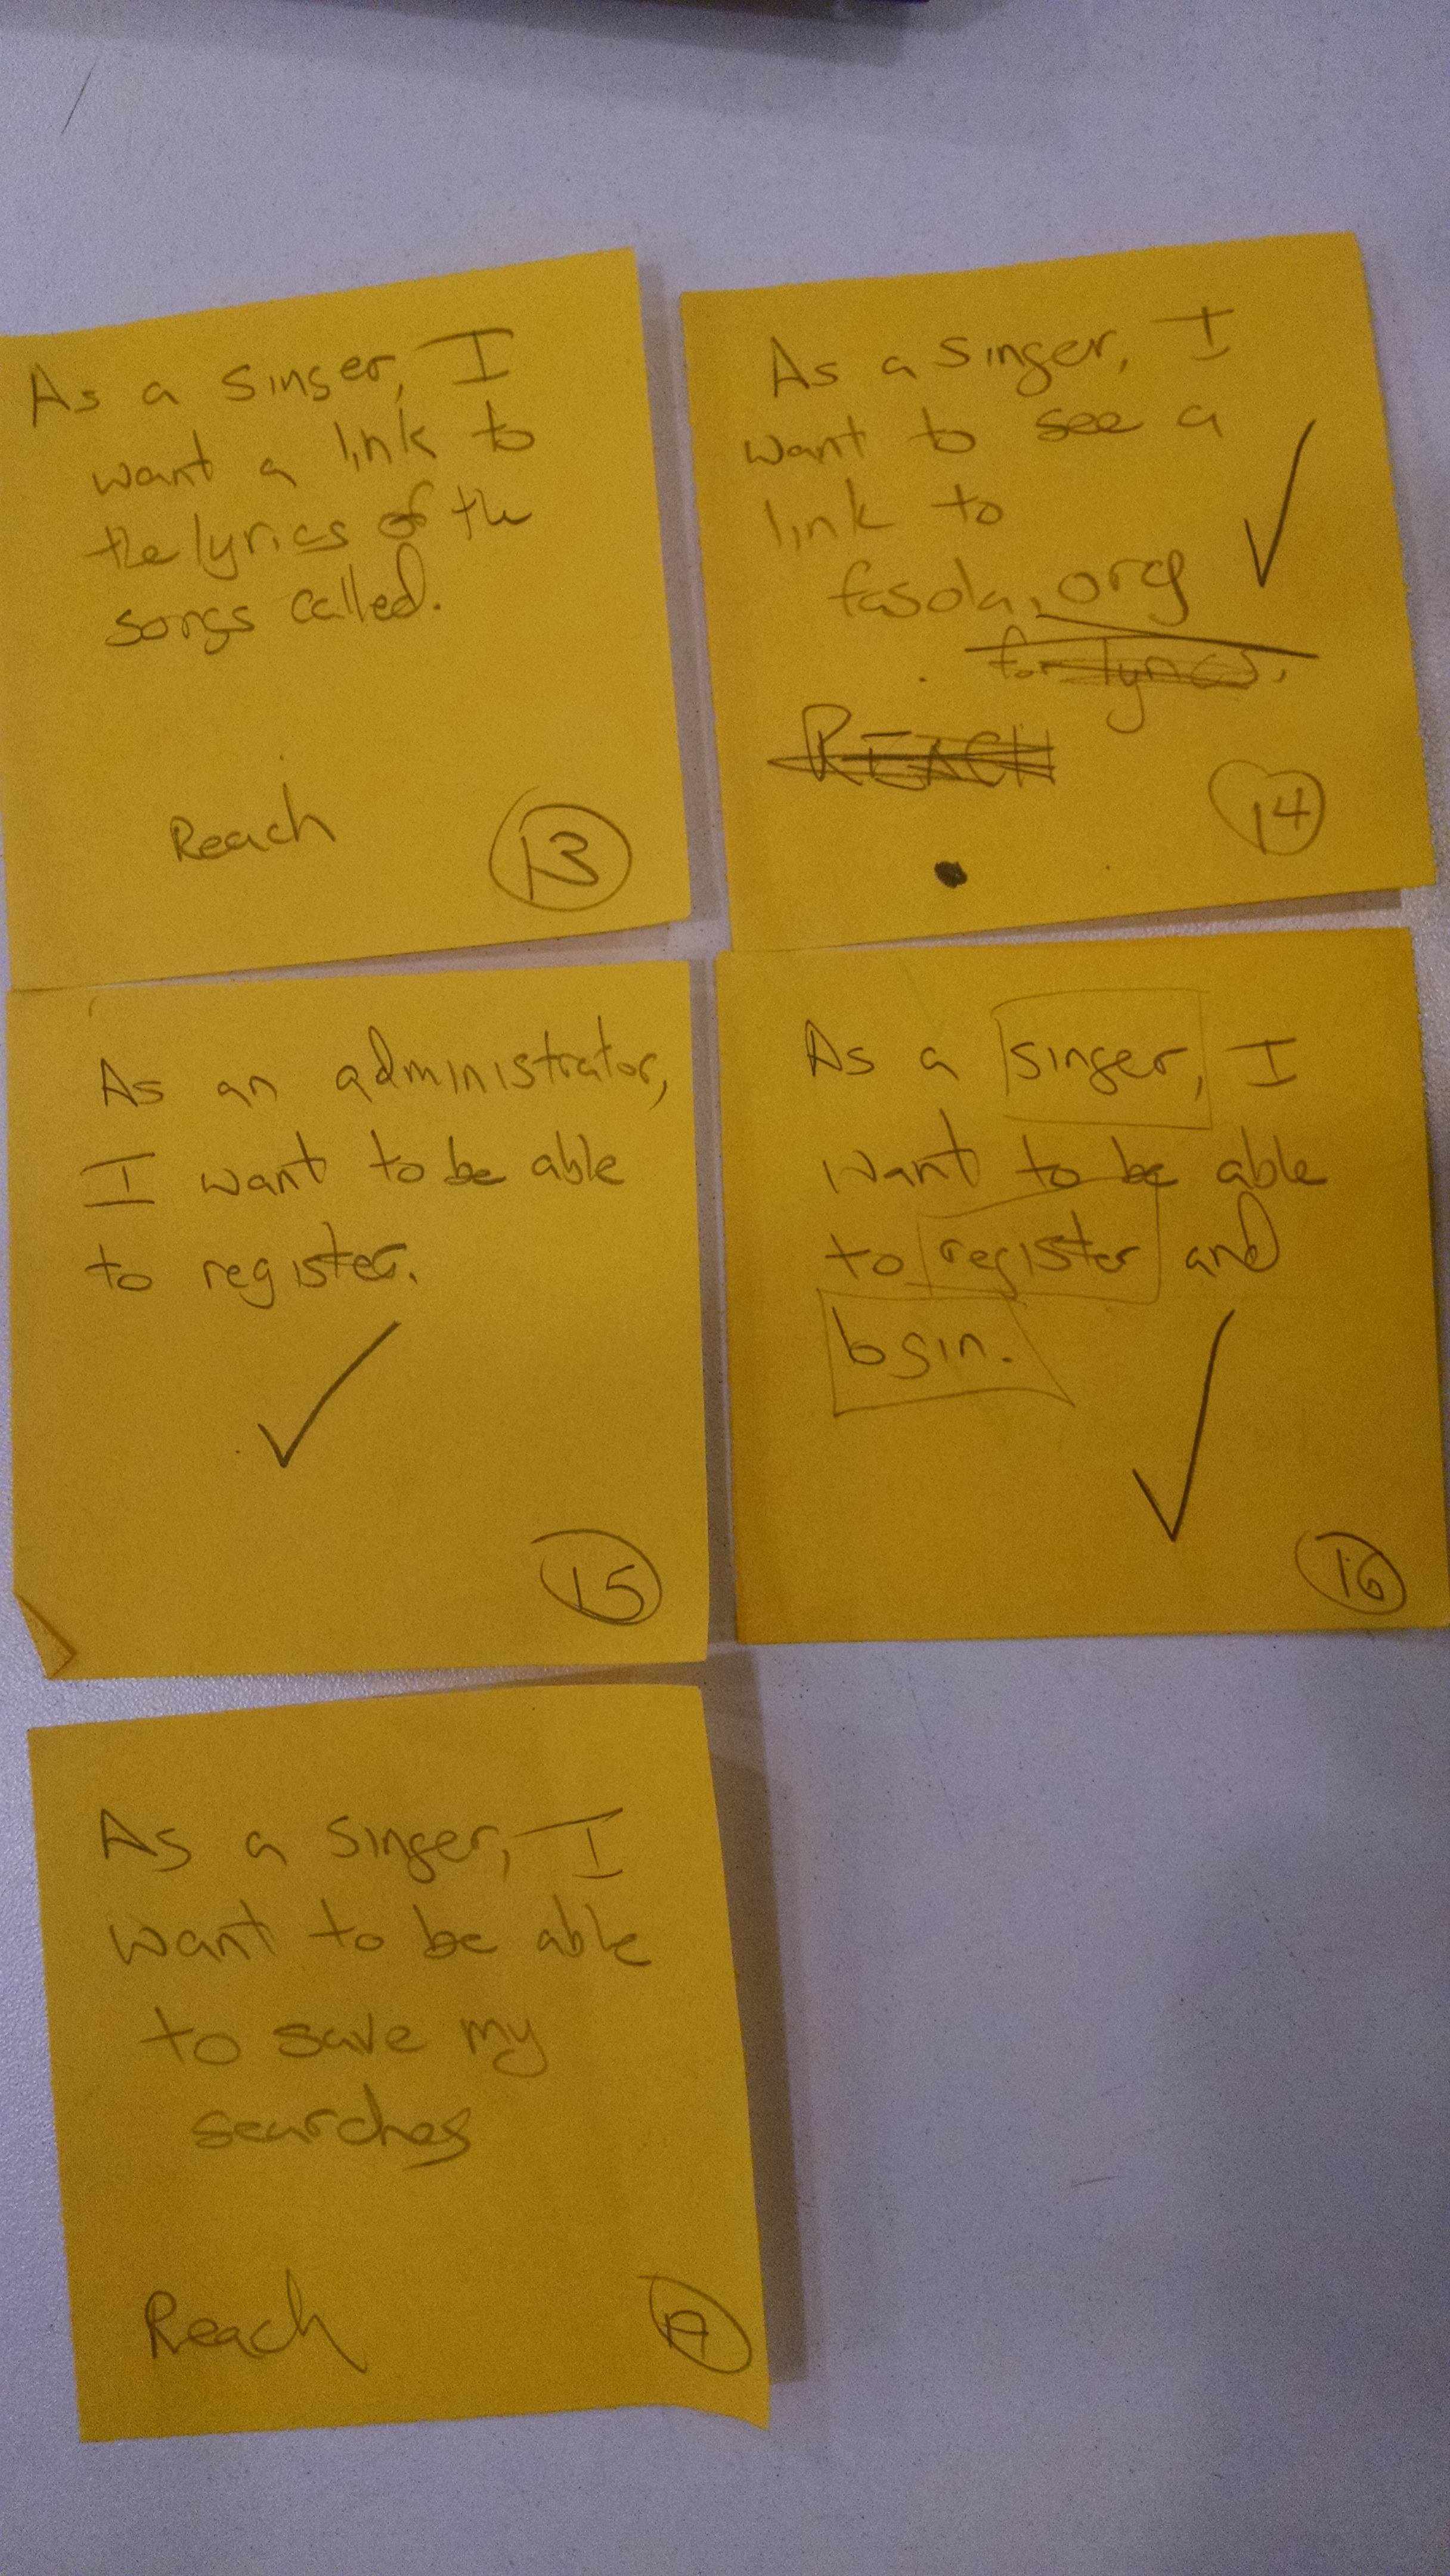 As a singer, I
want a link to
the lyrics of the
songs called.
Reach
13
As a singer, I
want to see a
link to
fasola.org
for lyrics.
REACH
14
As an administrator,
I want to be able
to register.
15
As a singer, I
want to be able
to register and
login.
16
As a singer, I
want to be able
to save my
searches
Reach
17